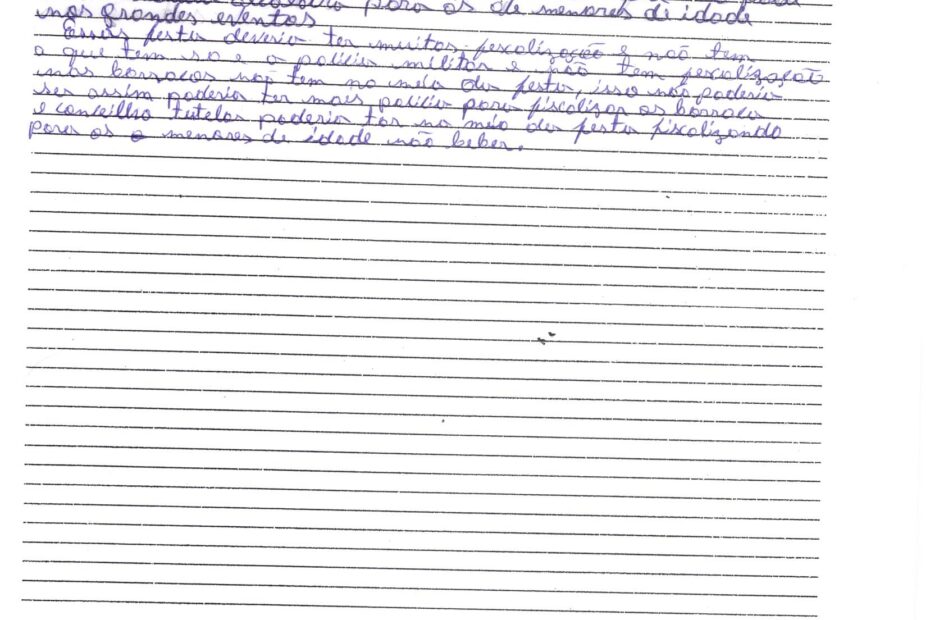 para os de menores de idade
nas grandes eventos
Esses festa deveria ter muitos fescalização e naõ tem
o que tem so e a policia militar e não tem fescalizaçaõ
nas barracas naõ tem no meio da festa, isso não poderia
ser assim poderia ter mais policia para fiscalizar as barraca
e conceilho tutelar poderia tar no meio da festa fiscalizando
para os menores de idade não beber.